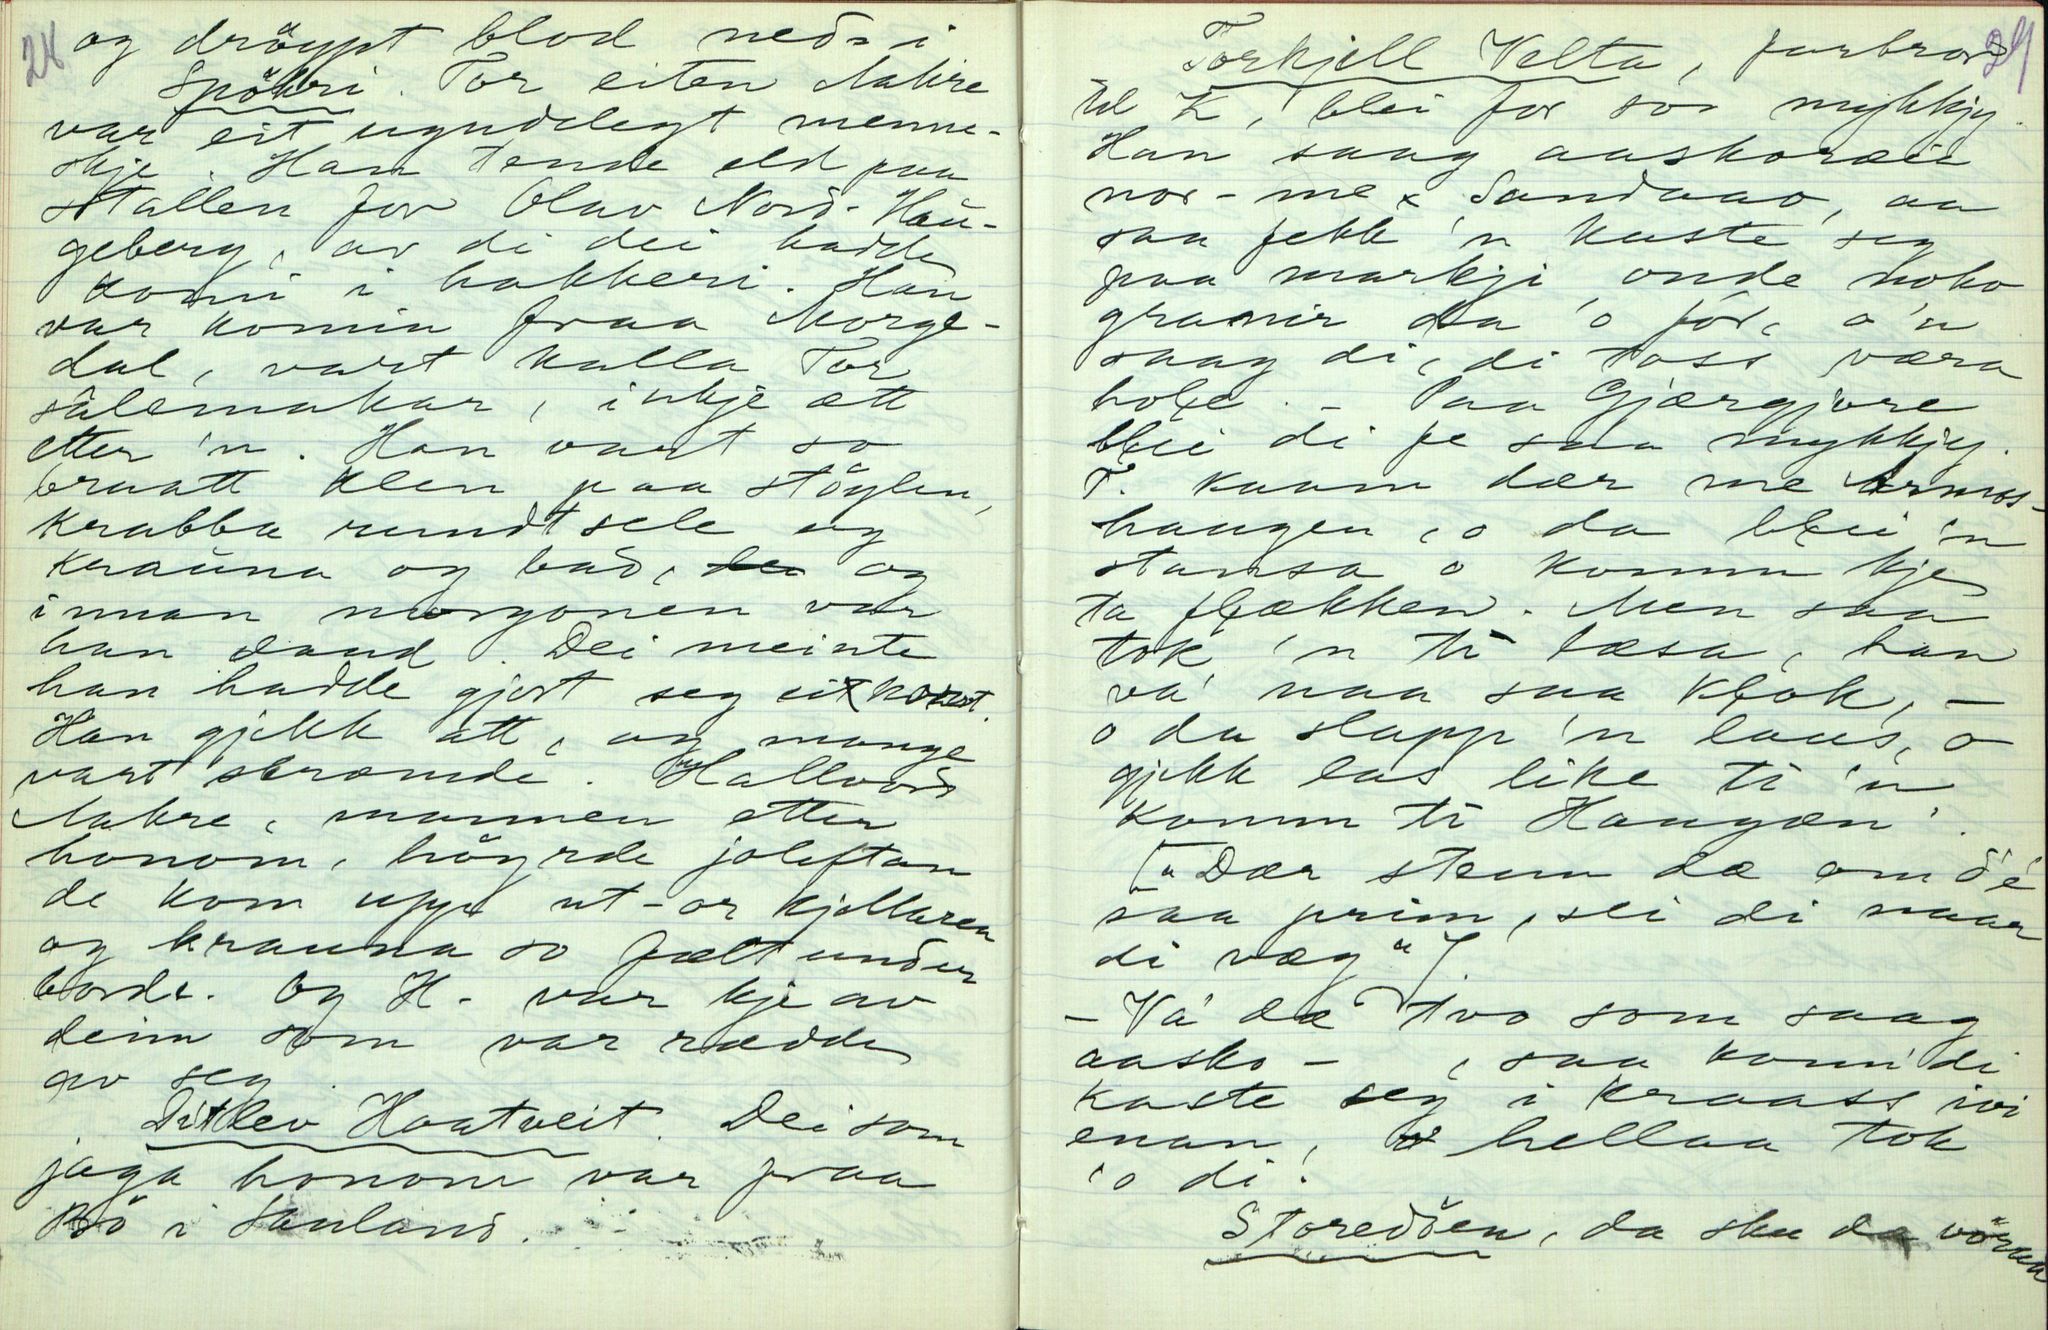 28
og dröypt blod neds i
Spökri. Tor eiten Aakre
var eit ugudelegt menne-
skje. Han tende eld paa
stallen for Olav Nord-Hau-
geberg, av di dei hadde
komi i hakkeri. Han
var komin fraa Morge-
dal, vart kalla Tor
sálemakar, inkje ætt
etter 'n. Han vart so
braatt klen paa stöylen,
krabba rundt sele og
krauna og bad, og
innan morgonen var
han daud. Dei meinte
han hadde gjort seg eit
Han gjekk att, og mange
vart skræmde. Hallvord
Aakre, mannen etter
honom, höyrde joleftan
de kom upp ut-or kjellaren
og krauna so fælt under
borde. Og H. var kje av
deim som var rædde
av seg.
Ditlev Haatveit. Dei som
jaga honom var fraa
Bö i Sauland.
29
Torkjell Velta, farbror
til K, blei for so mykkjy.
Han saag aaskoræii
nor-me Sandaao, aa
saa fekk 'n kaste seg
paa markji onde noko
granir daa 'o fór, o 'n
saag di, di toss væra
hole. - Paa Gjærgjore
blei di fe saa mykkjy.
T. kaam dær me
haugen, o da blei 'n
stansa o komm kje
ta flækken. Men saa
tok 'n ti læsa, han
va' naa saa klok, -
o da slapp 'n laus, o
gjekk las like ti 'n
komm ti Haugæn'.
["Dær stenn dæ om d'é
saa prim, sei di naar
di væg"].
- Va' dæ tvo som saag
aasko- , saa konn' di
kaste seg i kraass ivi
enan, hellaa tok
'o di!
Storedöen, da sku da vöraa